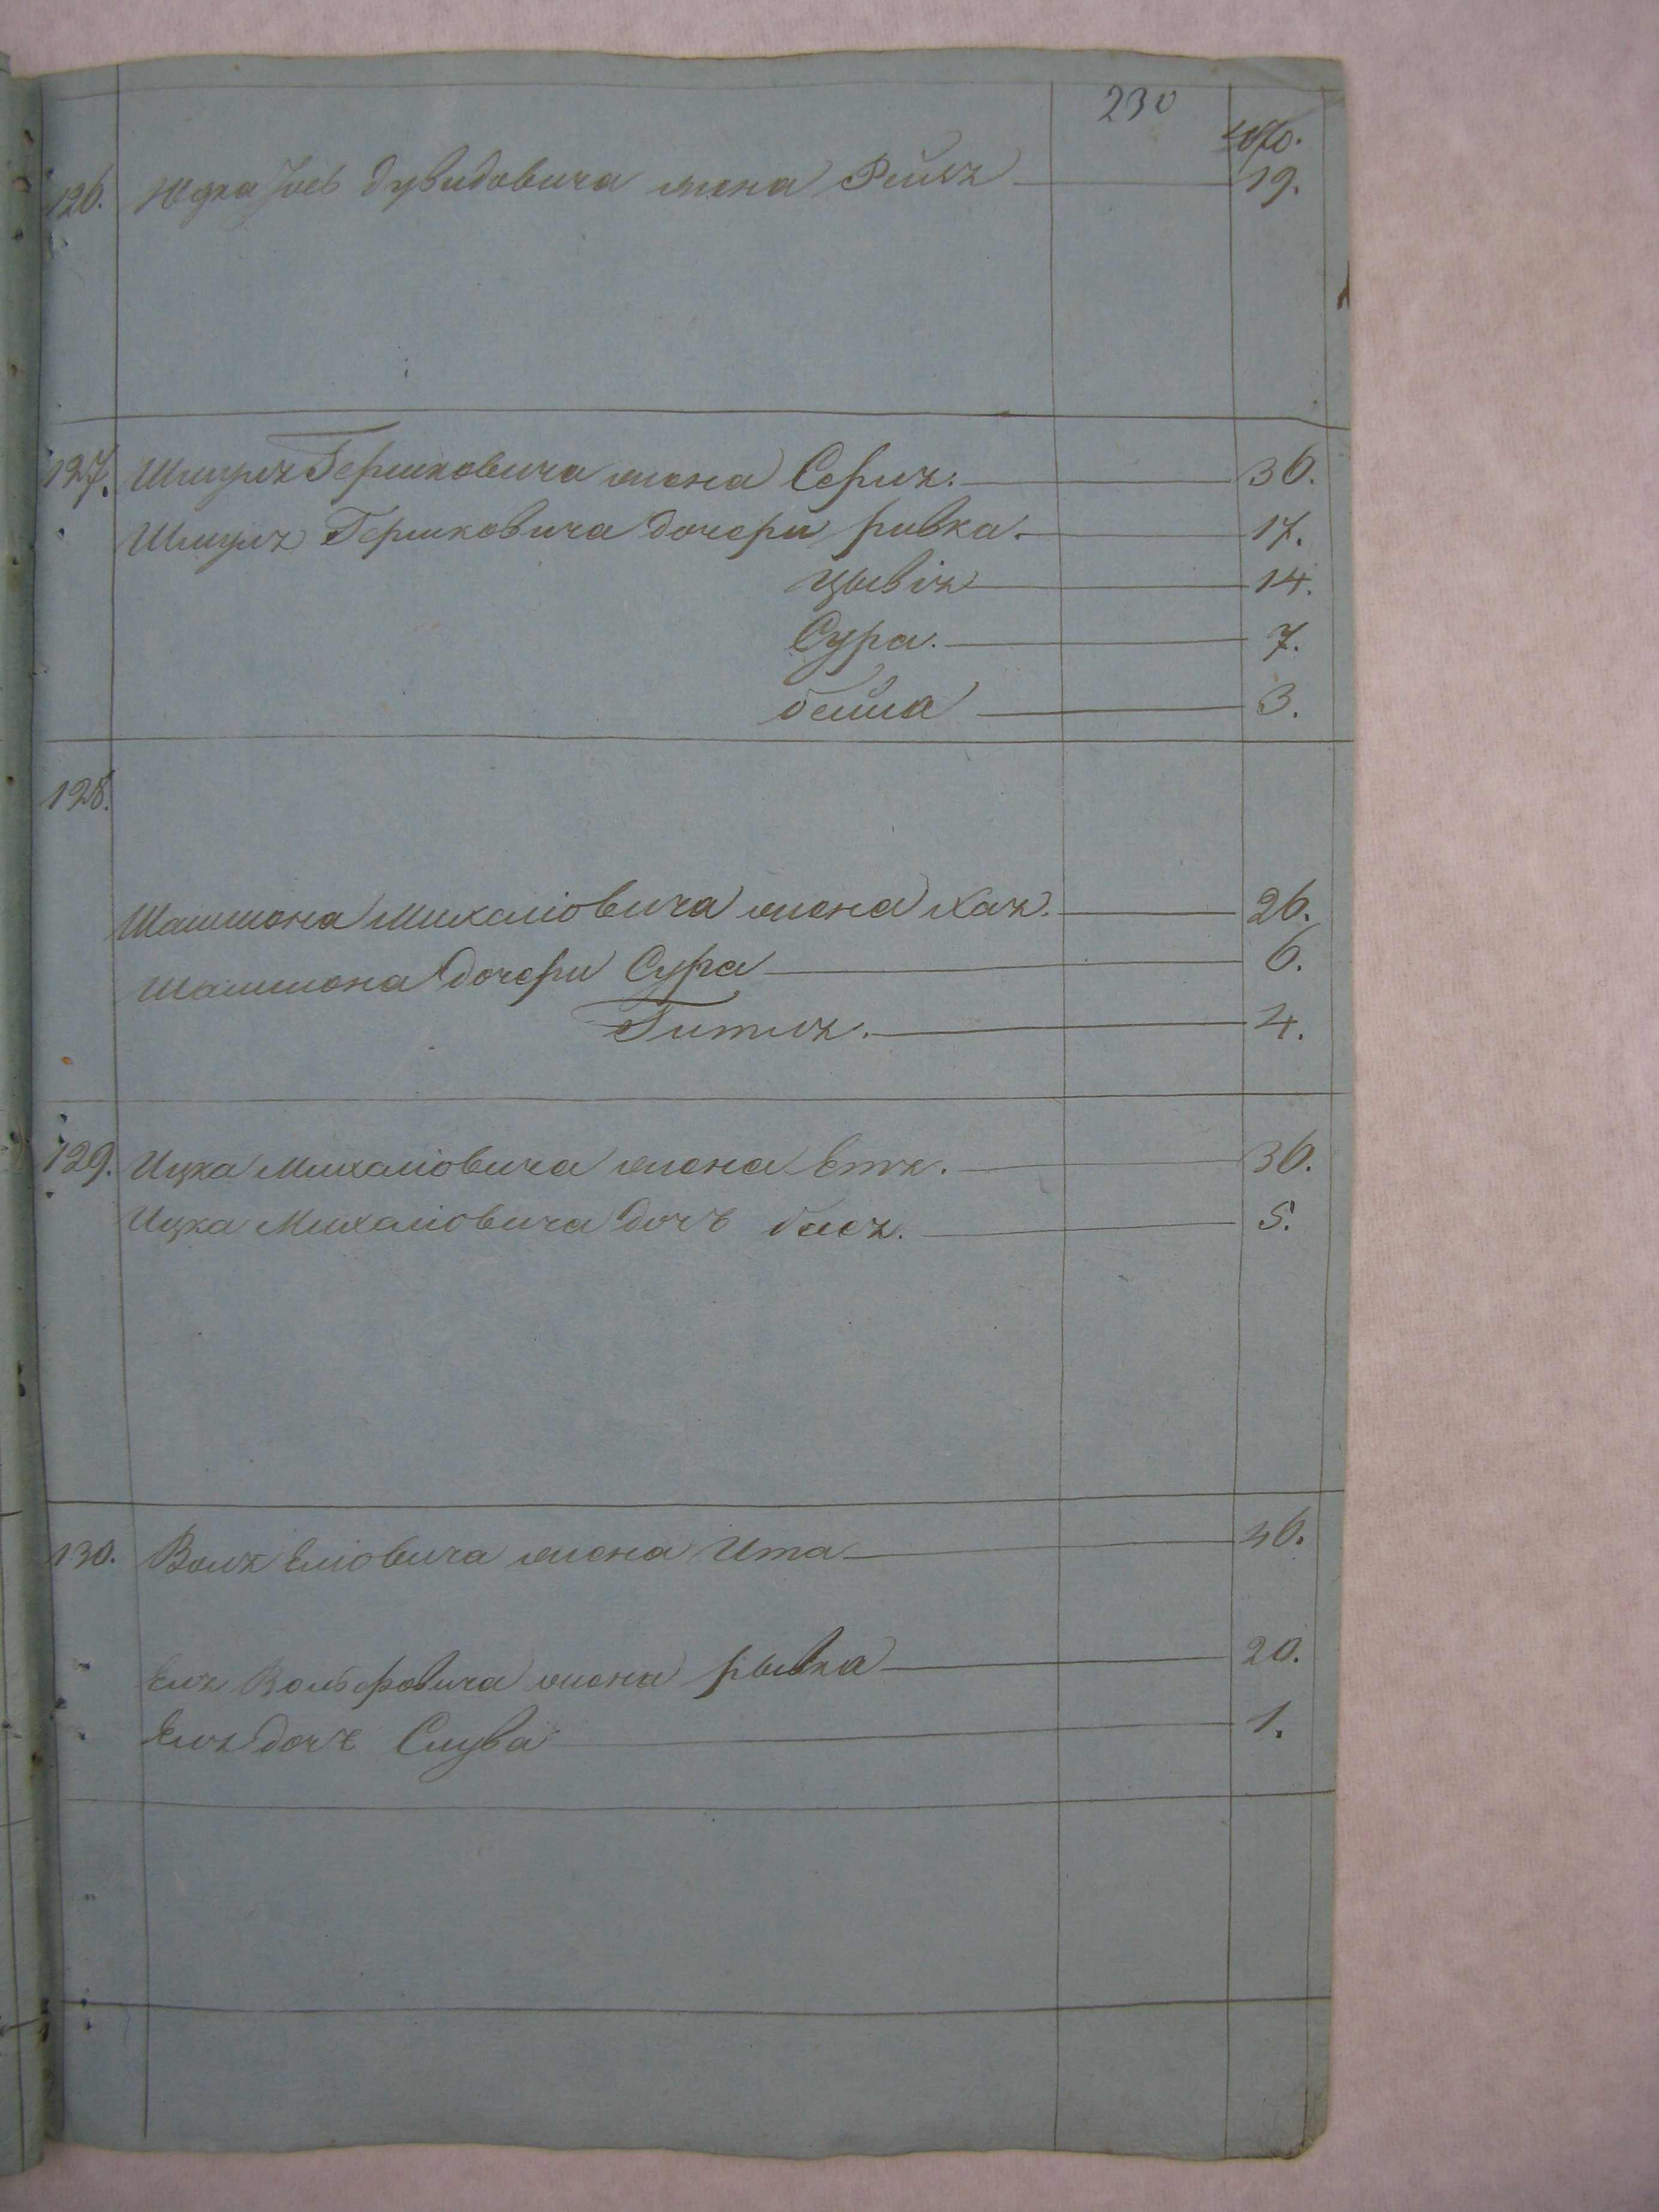 230
470.
126. Юдка Іось Дувидовича жена Рейзя 19.
127. Шмуля Гершковича жена Серля. 36.
Шмуля Гершковича дочери ривка. 17.
цывія 14.
Сура. 7.
бейла 3.
128.
Шлиомона Михаліовича жена Хая. 26.
Шлиомона дочери Сура 6.
Гитля. 4.
129. Ицка Михаліовича жена Етя. 36.
Ицка Михаліовича дочь бася. 5.
130. Воля Еліовича жена Ита 46.
Еля Вольфовича жена рывка 20.
Еля дочь Слува 1.